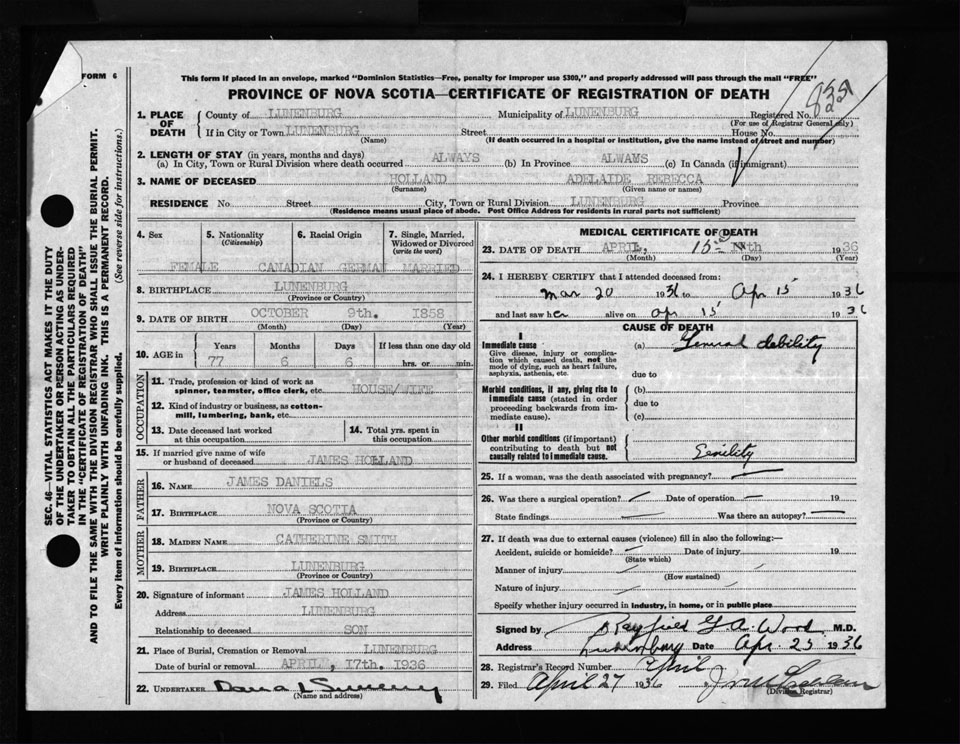 FORM 6
This form if placed in an envelope, marked "Dominion Statistics—Free, penalty for improper use $300," and properly addressed will pass through the mail "FREE"
PROVINCE OF NOVA SCOTIA—CERTIFICATE OF REGISTRATION OF DEATH
1. PLACE OF DEATH
County of LUNENBURG Municipality of LUNENBURG Registered No.
(For use of Registrar General only)
If in City or Town LUNENBURG Street House No.
(Name) (If death occurred in a hospital or institution, give the name instead of street and number)
2. LENGTH OF STAY (in years, months and days)
(a) In City, Town or Rural Division where death occurred ALWAYS (b) In Province ALWAMS (c) In Canada (if immigrant)
3. NAME OF DECEASED HOLLAND ADELAIDE REBECCA
(Surname) (Given name or names)
RESIDENCE No Street City, Town or Rural Division LUNENBURG Province
(Residence means usual place of abode. Post Office Address for residents in rural parts not sufficient)
4. Sex 5. Nationality (Citizenship) 6. Racial Origin 7. Single, Married, Widowed or Divorced (write the word)
FEMALE CANADIAN GERMAN MARRIED
8. BIRTHPLACE LUNENBURG
(Province or Country)
9. DATE OF BIRTH OCTOBER 9th. 1858
(Month) (Day) (Year)
10. AGE in Years Months Days If less than one day old
77 6 6 hrs. or min.
OCCUPATION
11. Trade, profession or kind of work as
spinner, teamster, office clerk, etc. HOUSE/WIFE
12. Kind of industry or business, as cotton-
mill, lumbering, bank, etc.
13. Date deceased last worked
at this occupation
14. Total yrs. spent in
this occupation
15. If married give name of wife
or husband of deceased JAMES HOLLAND
FATHER
16. NAME JAMES DANIELS
17. BIRTHPLACE NOVA SCOTIA
(Province or Country)
MOTHER
18. MAIDEN NAME CATHERINE SMITH
19. BIRTHPLACE LUNENBURG
(Province or Country)
20. Signature of informant JAMES HOLLAND
Address LUNENBURG
Relationship to deceased SON
21. Place of Burial, Cremation or Removal LUNENBURG
Date of burial or removal APRIL, 17th. 1936
22. UNDERTAKER
(Name and address)
MEDICAL CERTIFICATE OF DEATH
23. DATE OF DEATH APRIL, 15 th 1936
(Month) (Day) (Year)
24. I HEREBY CERTIFY that I attended deceased from:
Mar 20 1936 to Apr 15 1936
and last saw her alive on Apr 15 1936
CAUSE OF DEATH
I
Immediate cause (a) General debility
Give disease, injury or complica-
tion which caused death, not the
mode of dying, such as heart failure,
asphyxia, asthenia, etc.
due to
Morbid conditions, if any, giving rise to
immediate cause (stated in order
proceeding backwards from im-
mediate cause).
(b)
due to
(c)
II
Other morbid conditions (if important)
contributing to death but not
causally related to immediate cause.
Senility
25. If a woman, was the death associated with pregnancy?
26. Was there a surgical operation? Date of operation 19
State findings Was there an autopsy?
27. If death was due to external causes (violence) fill in also the following:—
Accident, suicide or homicide? Date of injury 19
(State which)
Manner of injury
(How sustained)
Nature of injury
Specify whether injury occurred in industry, in home, or in public place
Signed by Rayfield G. A. Wood M.D.
Address Lunenburg Date Apr. 25 1936
28. Registrar's Record Number April
29. Filed April 27 1936
(Division Registrar)
SEC. 46—VITAL STATISTICS ACT MAKES IT THE DUTY
OF THE UNDERTAKER OR PERSON ACTING AS UNDER-
TAKER TO OBTAIN ALL THE PARTICULARS REQUIRED
IN THE "CERTIFICATE OF REGISTRATION OF DEATH"
AND TO FILE THE SAME WITH THE DIVISION REGISTRAR WHO SHALL ISSUE THE BURIAL PERMIT.
WRITE PLAINLY WITH UNFADING INK. THIS IS A PERMANENT RECORD.
Every item of information should be carefully supplied. (See reverse side for instructions.)